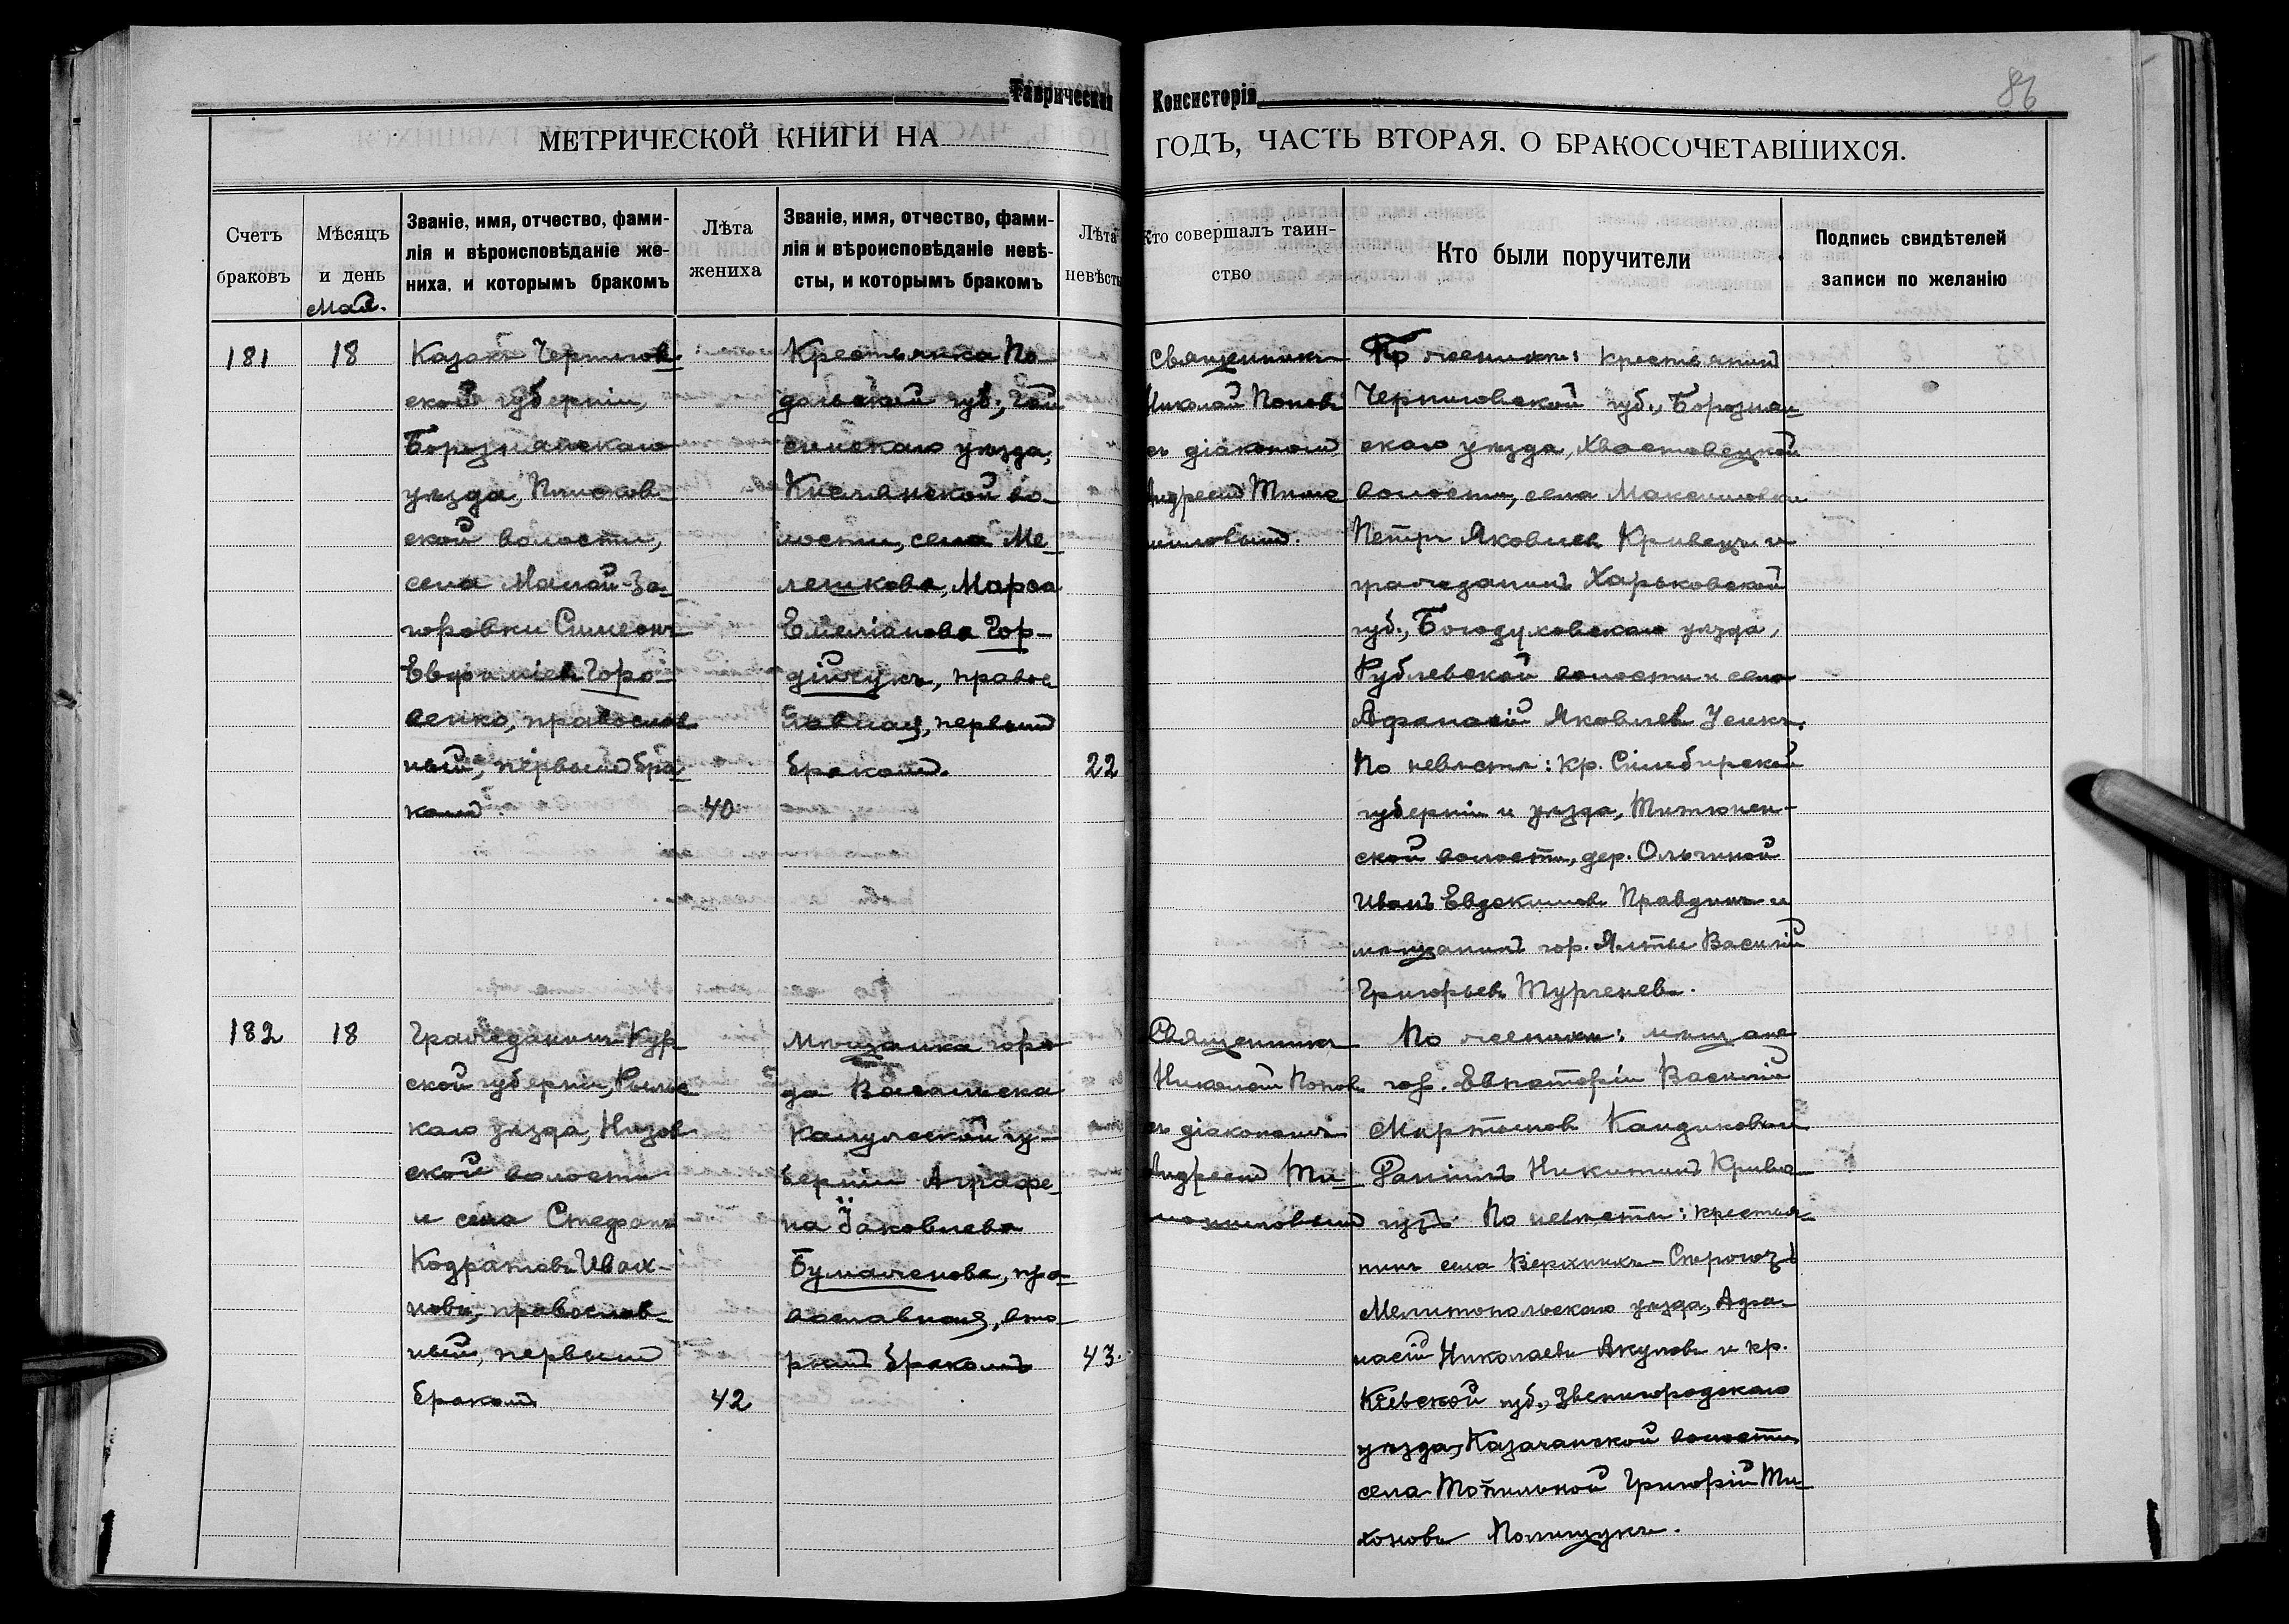 Таврической Консисторіи
86
МЕТРИЧЕСКОЙ КНИГИ НА ГОДЪ, ЧАСТЬ ВТОРАЯ. О БРАКОСОЧЕТАВШИХСЯ.
Счетъ браковъ
Мѣсяцъ и день
Званіе, имя, отчество, фами-
лія и вѣроисповѣданіе же-
ниха, и которымъ бракомъ
Лѣта жениха
Званіе, имя, отчество, фами-
лія и вѣроисповѣданіе невѣ-
сты, и которымъ бракомъ
Лѣта невѣсты
Кто совершалъ таин-
ство
Кто были поручители
Подпись свидѣтелей
записи по желанію
Май.
181
18
Казакъ Чернигов-
ской губерніи,
Борзнянскаго
уѣзда, Плисков-
ской волости,
села Малой-За-
горовки Симеонъ
Евфиміевъ Горо-
венко, православ
ный, первымъ бра-
комъ.
40
Крестьянка По-
дольской губ., Гай
синскаго уѣзда,
Кисляской во-
лости, села Ме-
лешкова, Марѳа
Емеліанова Гор-
дійчукъ, правос
лавная, первымъ
бракомъ.
22
Священникъ
Николай Поповъ
съ діакономъ
Андреемъ Тимо
шиловымъ.
По женихѣ: крестьянинъ
Черниговской губ., Борзнян
скаго уѣзда, Хвастовецкой
волости, села Максимовки
Петръ Яковлевъ Кривецъ и
гражданинъ Харьковской
губ., Богодуховскаго уѣзда,
Рублевской волости и села
Афанасій Яковлевъ Усикъ.
По невѣстѣ: кр. Симбирской
губерніи и уѣзда, Тетюшен-
ской волости, дер. Ольгиной
Иванъ Евдокимовъ Правдинъ и
мѣщанинъ гор. Ялты Василій
Григорьевъ Тургеневъ.
182
18
Гражданинъ Кур-
ской губерніи, Рыльс
каго уѣзда, Низов
ской волости
и села Стефанъ
Кодратовъ Ивах-
новъ, православ-
ный, первымъ
бракомъ
42
Мѣщанка горо
да Васильска
Калужской гу-
берніи Аграфе-
на Іаковлева
Бумаженова, пра-
вославная, вто-
рымъ бракомъ
43.
Священникъ
Николай Поповъ
съ діакономъ
Андреемъ Ти-
мошиловымъ
По женихѣ: мѣщане
гор. Евпаторіи Василій
Мартыновъ Кандиковъ и
Никитинъ
По невѣстѣ: крестья-
нинъ села Верхнихъ-Серогозъ
Мелитопольскаго уѣзда, Афа-
насій Николаевъ Акуловъ и кр.
Кіевской губ., Звенигородскаго
уѣзда, Казачанской волости
села Топильной Григорій Ти-
хоновъ Полищукъ.